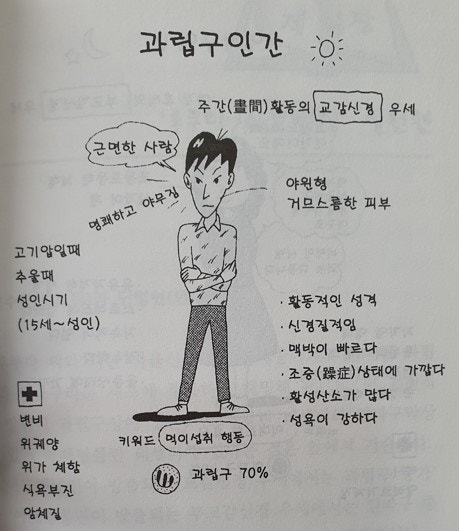 과립구인간
주간(晝間)활동의 교감신경 우세
근면한 사람
명쾌하고 야무짐
야윈형
거므스름한 피부
고기압일때
추울때
성인시기
(15세~성인)
· 활동적인 성격
· 신경질적임
· 맥박이 빠르다
· 조증(躁症)상태에 가깝다
· 활성산소가 많다
· 성욕이 강하다
변비
위궤양
위가 체함
식욕부진
암체질
키워드 먹이섭취 행동
과립구 70%